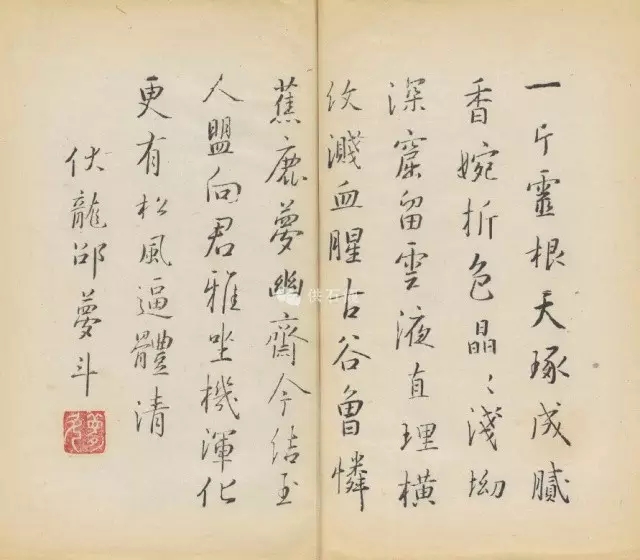 一片靈根天琢成膩
香婉折色晶〻淺坳
深窠留雲液直理橫
紋濺血腥古谷曾憐
蕉鹿夢幽齋今結玉
人盟向君雅坐機渾化
更有松風逼體清
伏龍邵夢斗